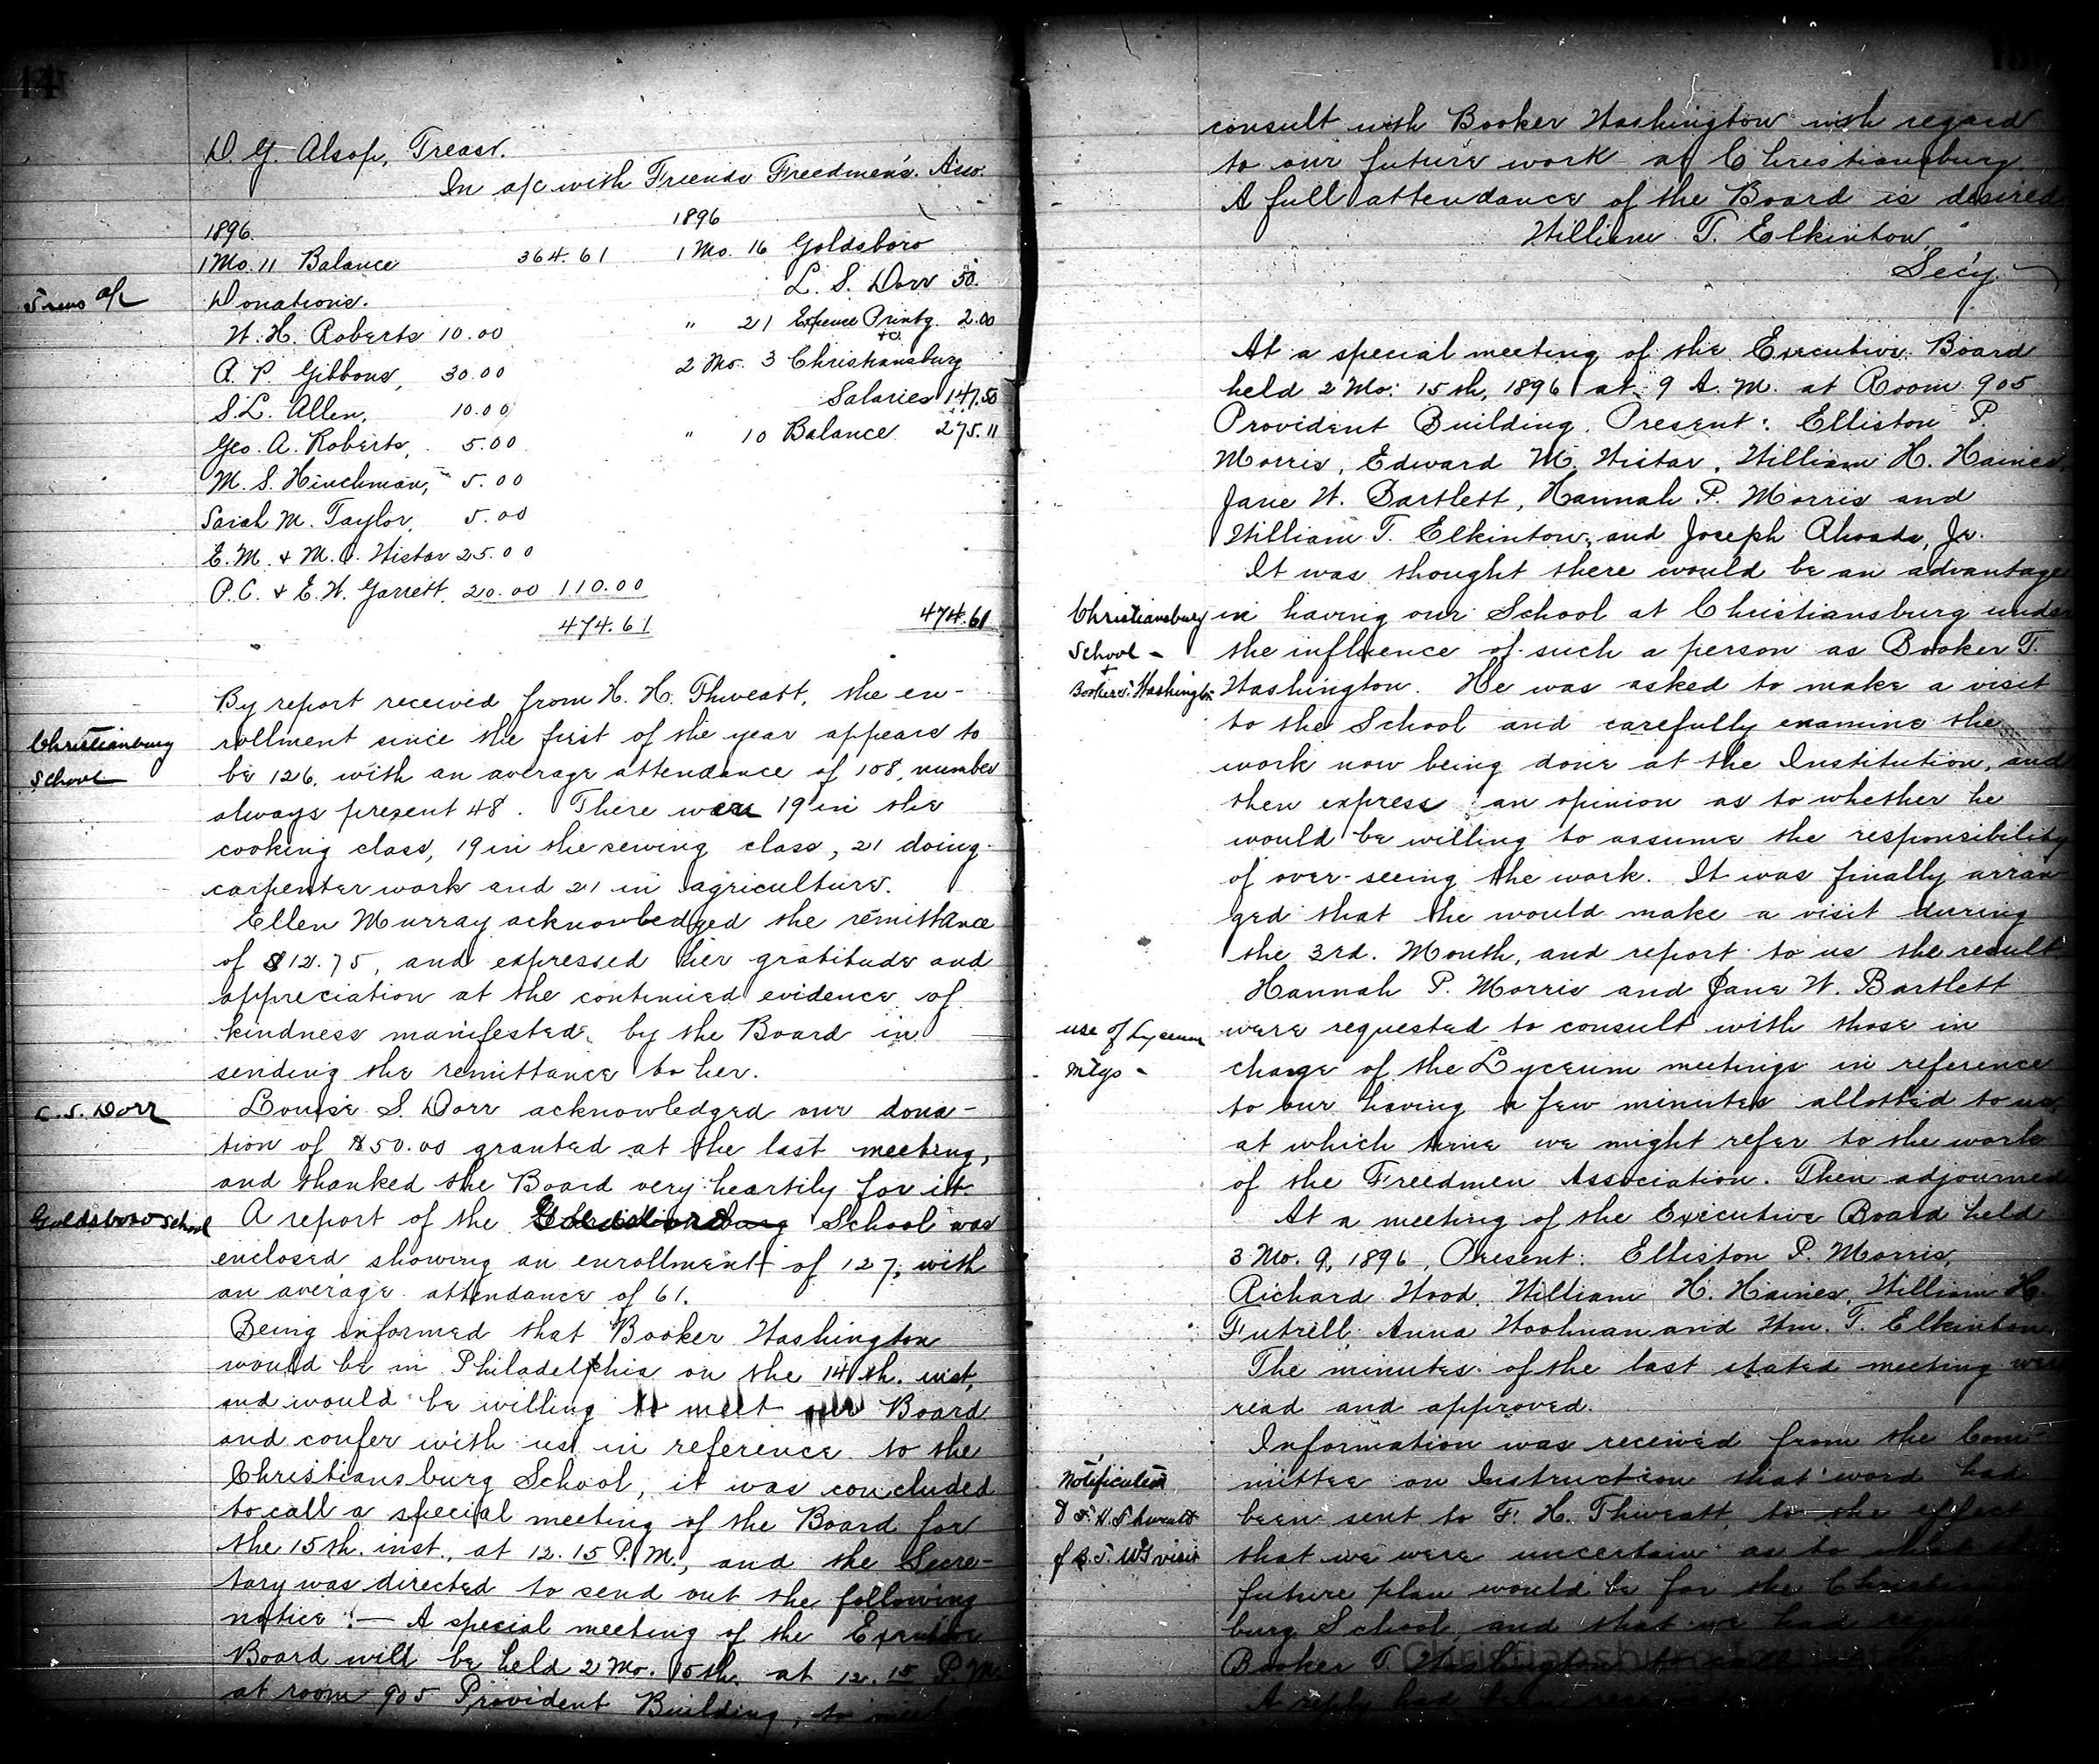 14
D. G. Alsop, Treasr.
In a/c with Friends Freedmen's Asso.
1896. 1896
1 Mo. 11 Balance 364.61 1 Mo. 16 Goldsboro
Treas a/c Donations. L. S. Dorr 50.
W. H. Roberts 10.00 " 21 Expence Printg. 2.00
A. P. Gibbons, 30.00 2 Mo. 3 Christiansburg
S. L. Allen, 10.00 Salaries 147.50
Geo. A. Roberts, 5.00 " 10 Balance 275.11
M. S. Hinchman, 5.00
Sarah M. Taylor, 5.00
E. M. & M. C. Wistar 25.00
P. C. & E. W. Garrett 20.00 110.00
474.61 474.61
By report received from H. H. Thweatt, the en-
Christianburg rollment since the first of the year appears to
School be 126, with an average attendance of 108, number
always present 48. There were 19 in the
cooking class, 19 in the sewing class, 21 doing
carpenter work and 21 in agriculture.
Ellen Murray acknowledged the remittance
of $12.75, and expressed her gratitude and
appreciation at the continued evidence of
kindness manifested by the Board in
sending the remittance to her.
L. S. Dorr Louise S. Dorr acknowledged our dona-
tion of $50.00 granted at the last meeting,
and thanked the Board very heartily for it.
Goldsboro School A report of the School was
enclosed showing an enrollment of 127, with
an average attendance of 61.
Being informed that Booker Washington
would be in Philadelphia on the 14th. inst,
and would be willing to meet our Board
and confer with us in reference to the
Christiansburg School, it was concluded
to call a special meeting of the Board for
the 15th. inst., at 12.15 P. M., and the Secre-
tary was directed to send out the following
notice :— A special meeting of the Executive
Board will be held 2 Mo. 15th. at 12.15 P.M.
at room 905 Provident Building, to meet
consult with Booker Washington with regard
to our future work at Christiansburg.
A full attendance of the Board is desired
William T. Elkinton,
Secy.
At a special meeting of the Executive Board
held 2 Mo. 15th, 1896 at 9 A. M. at Room 905
Provident Building. Present: Elliston P.
Morris, Edward M. Wistar, William H. Haines,
Jane W. Bartlett, Hannah P. Morris and
William T. Elkinton, and Joseph Rhoads, Jr.
It was thought there would be an advantage
Christiansburg in having our School at Christiansburg under
School - the influence of such a person as Booker T.
+ Booker T. Washington Washington. He was asked to make a visit
to the School and carefully examine the
work now being done at the Institution, and
then express an opinion as to whether he
would be willing to assume the responsibility
of over-seeing the work. It was finally arran-
ged that he would make a visit during
the 3rd. Month, and report to us the result.
Hannah P. Morris and Jane W. Bartlett
use of Lyceum were requested to consult with those in
mtgs - charge of the Lyceum meetings in reference
to our having a few minutes allotted to us,
at which time we might refer to the work
of the Freedmen Association. Then adjourned
At a meeting of the Executive Board held
3 Mo. 9, 1896, Present: Elliston P. Morris,
Richard Wood, William H. Haines, William H.
Futrell, Anna Woolman and Wm. T. Elkinton.
The minutes of the last stated meeting were
read and approved.
Information was received from the Com-
Notification mittee on Instruction that word had
been sent to F. H. Thweatt, to the effect
of B. T. W's visit that we were uncertain as to
future plan would be for the
burg School, and that we had
Booker T. Washington
A reply had been